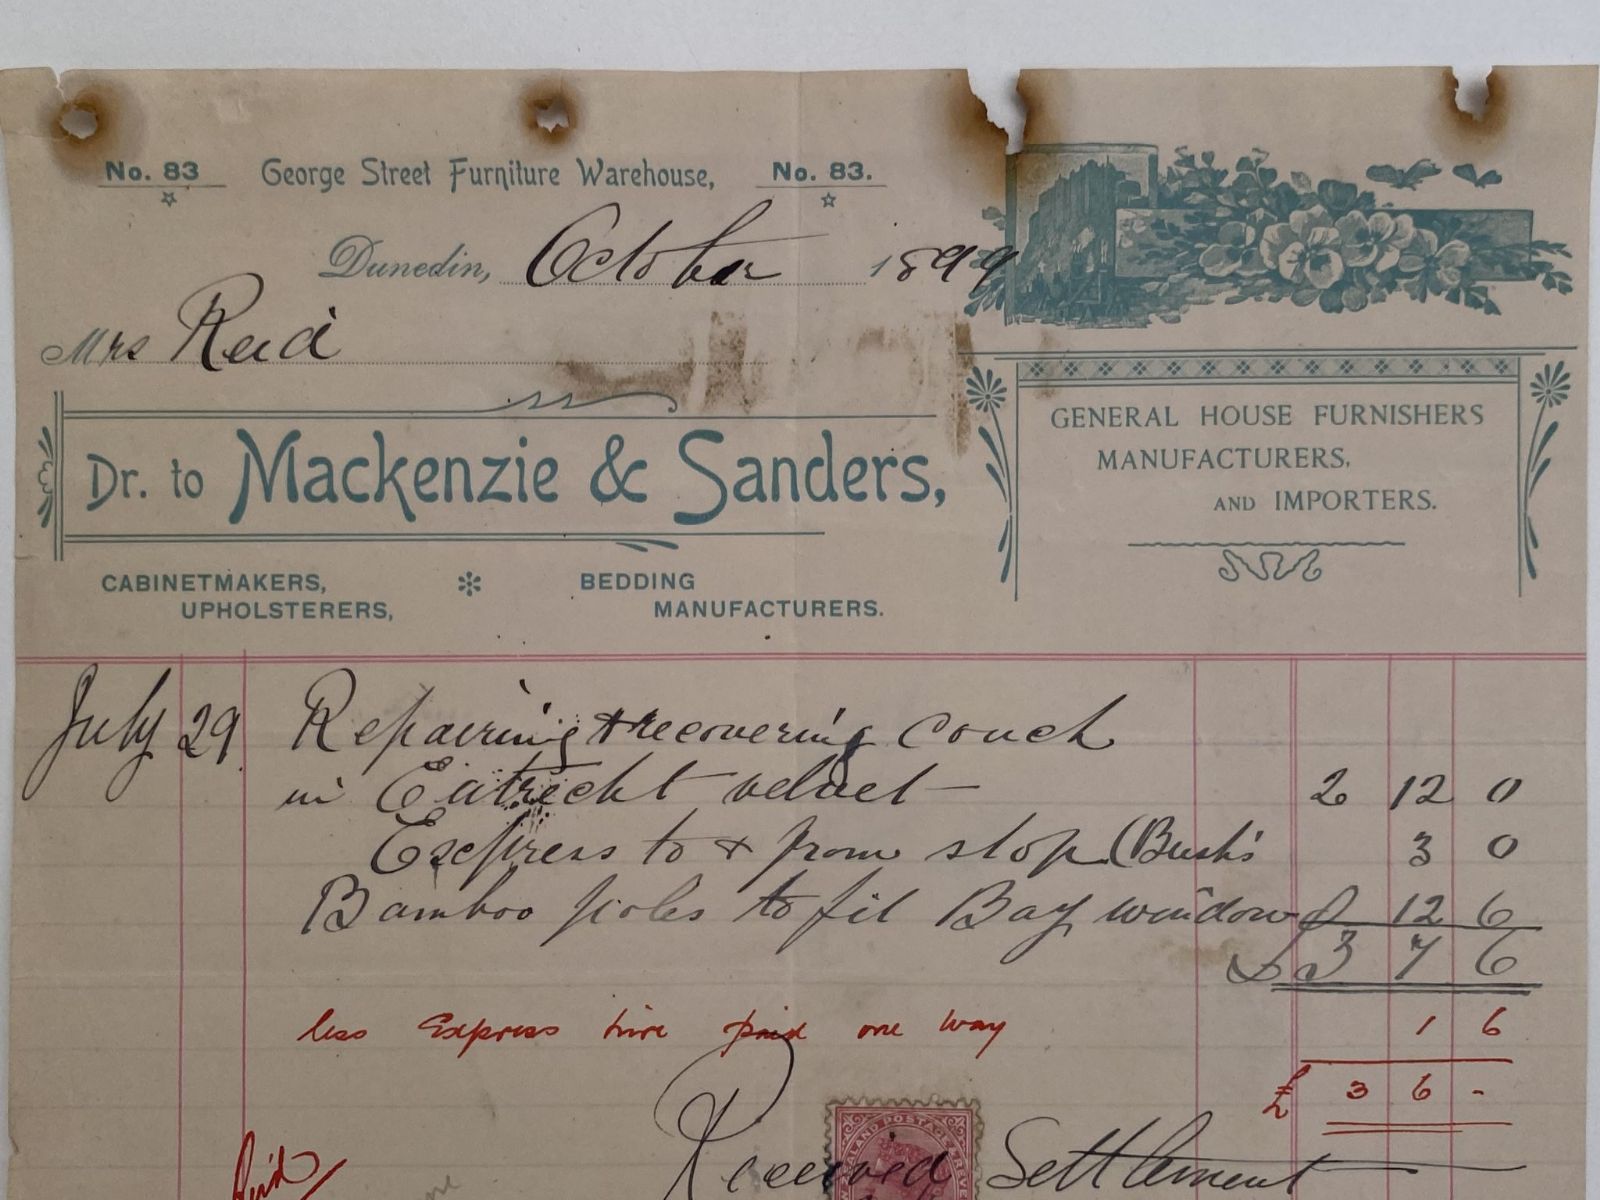 No. 83 George Street Furniture Warehouse, No. 83.
Dunedin, October 1899
Mrs Reid
Dr. to Mackenzie & Sanders,
GENERAL HOUSE FURNISHERS
MANUFACTURERS,
AND IMPORTERS.
CABINETMAKERS,
UPHOLSTERERS,
BEDDING
MANUFACTURERS.
July 29 Repairing & recovering couch
in Eutrecht velvet — 2 12 0
Express to & from shop (Bush's 3 0
Bamboo poles to fit Bay window 12 6
£ 3 7 6
less Express hire paid one way 1 6
£ 3 6 -
Received Settlement
Paid
ALAND POSTAGE & REVE